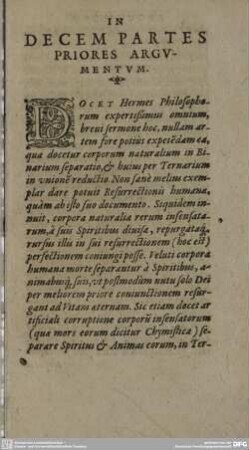 IN
DECEM PARTES
PRIORES ARGV-
MENTVM.
DOCET Hermes Philosopho-
rum expertissimus omnium,
breui sermone hoc, nullam ar-
tem fore potius expetēdam ea,
qua docetur corporum naturalium in Bi-
narium separatio, & huius per Ternarium
in vnionē reductio. Non sanè melius exem-
plar dare potuit Resurrectionis humanæ,
quàm ab isto suo documento. Siquidem in-
nuit, corpora naturalia rerum insensata-
rum, à suis Spiritibus diuisa, repurgataq́;
rursus illis in sui resurrectionem (hoc est)
perfectionem coniungi posse. Veluti corpora
humana morte separantur à Spiritibus, a-
nimabusq́; suis, vt postmodùm nutu solo Dei
per meliorem priore coniunctionem resur-
gant ad Vitam æternam. Sic etiam docet ar-
tificiali corruptione corperū insensatorum
(qua mors eorum dicitur Chymistica) se-
parare Spiritus & Animas eorum, in Ter-